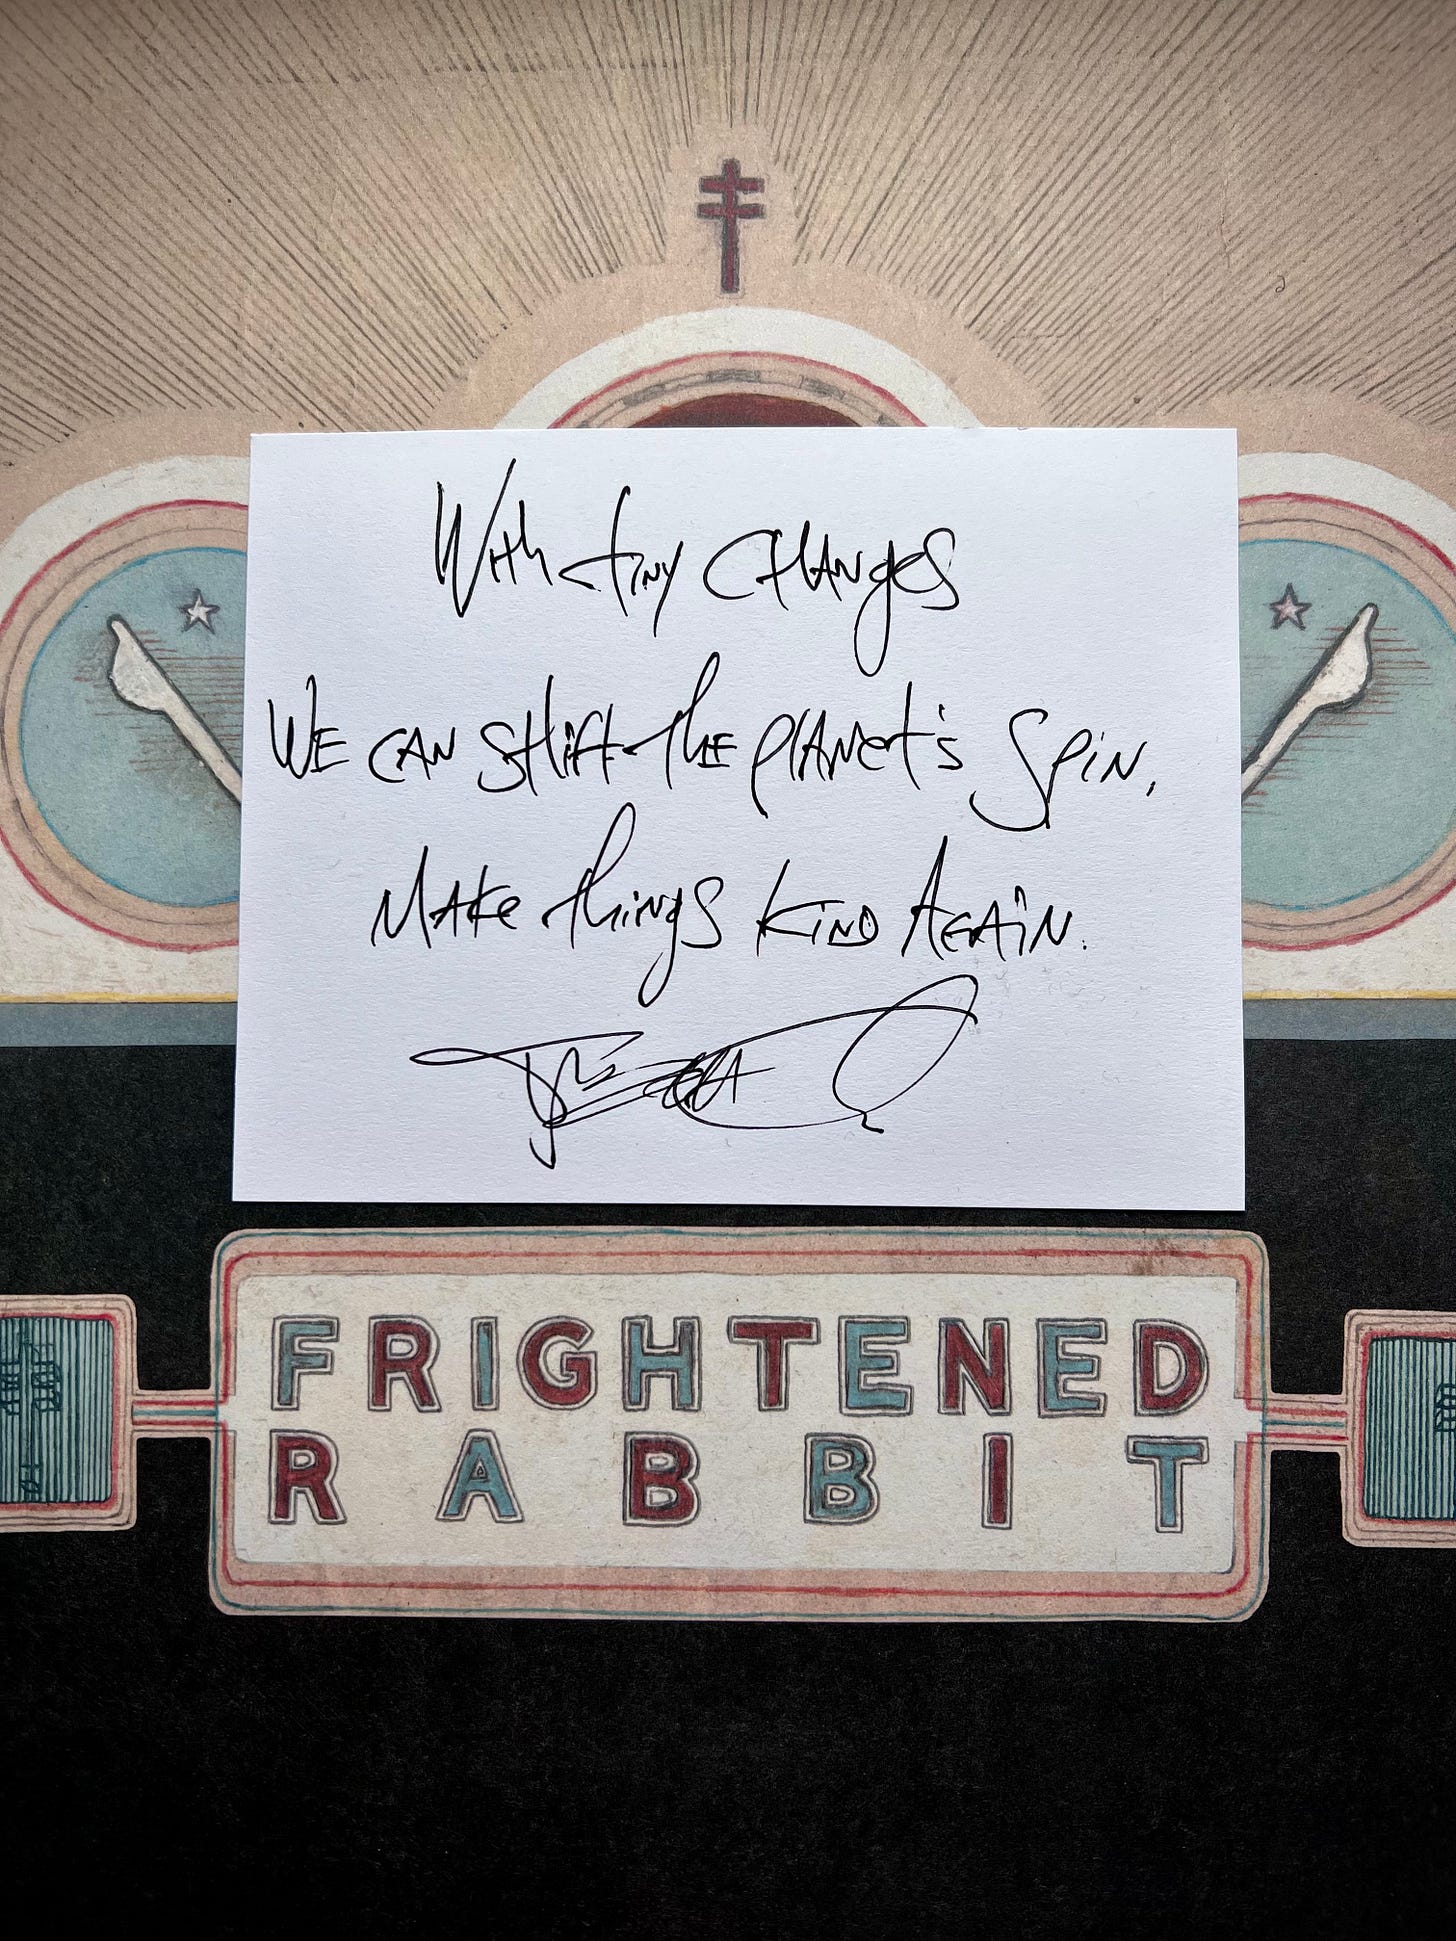 With tiny changes
We can shift the planet's spin,
Make things kind again.
FRIGHTENED
RABBIT